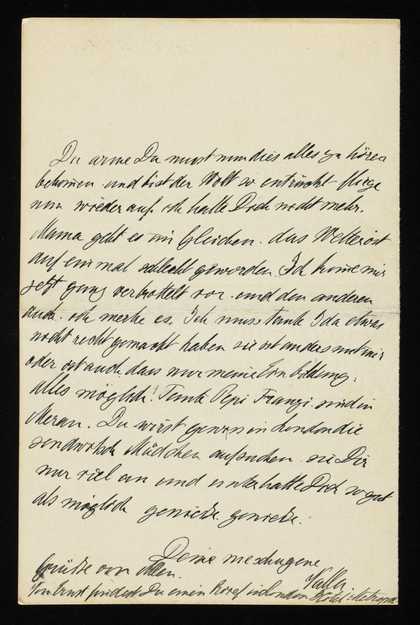 Du arme Du musst nun dies alles zu hören
bekommen und bist der Welt so entrückt fliege
nun wieder auf. ich halte Dich nicht mehr.
Mama geht es im Gleichen. das Wetter ist
auf einmal schlecht geworden. Ich komme mir
jetzt ganz vertrottelt vor und den anderen
auch. ich merke es. Ich muss Tante Ida etwas
nicht recht gemacht haben sie ist anders mit mir
oder ist auch dass nur meine Einbildung.
alles möglich! Tante Pepi Franzi sind in
Meran. Du wirst gewiss in London die
Mädchen aufsuchen. sie Dir
nur viel an und unterhalte Dich so gut
als möglich geniesse. geniesse.
Deine meschugene
Grüsse von Allen.
Von Ernst findest Du einen Brief in London Hotel Metropol